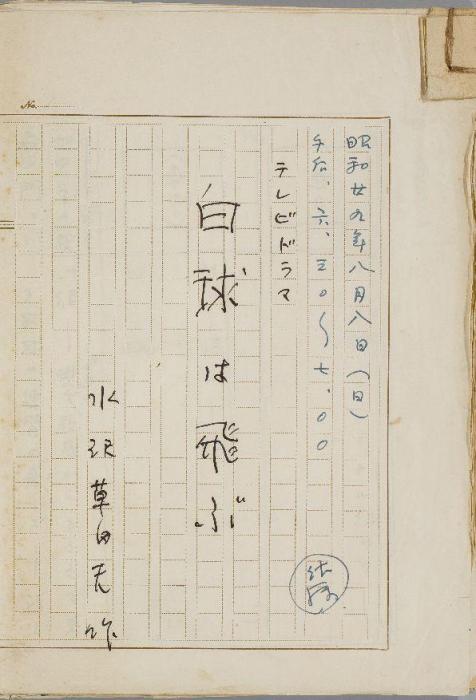 No.
昭和廿九年八月八日(日)
午后、六、三〇~七、〇〇
テレビドラマ
白球は飛ぶ
水沢草田夫作